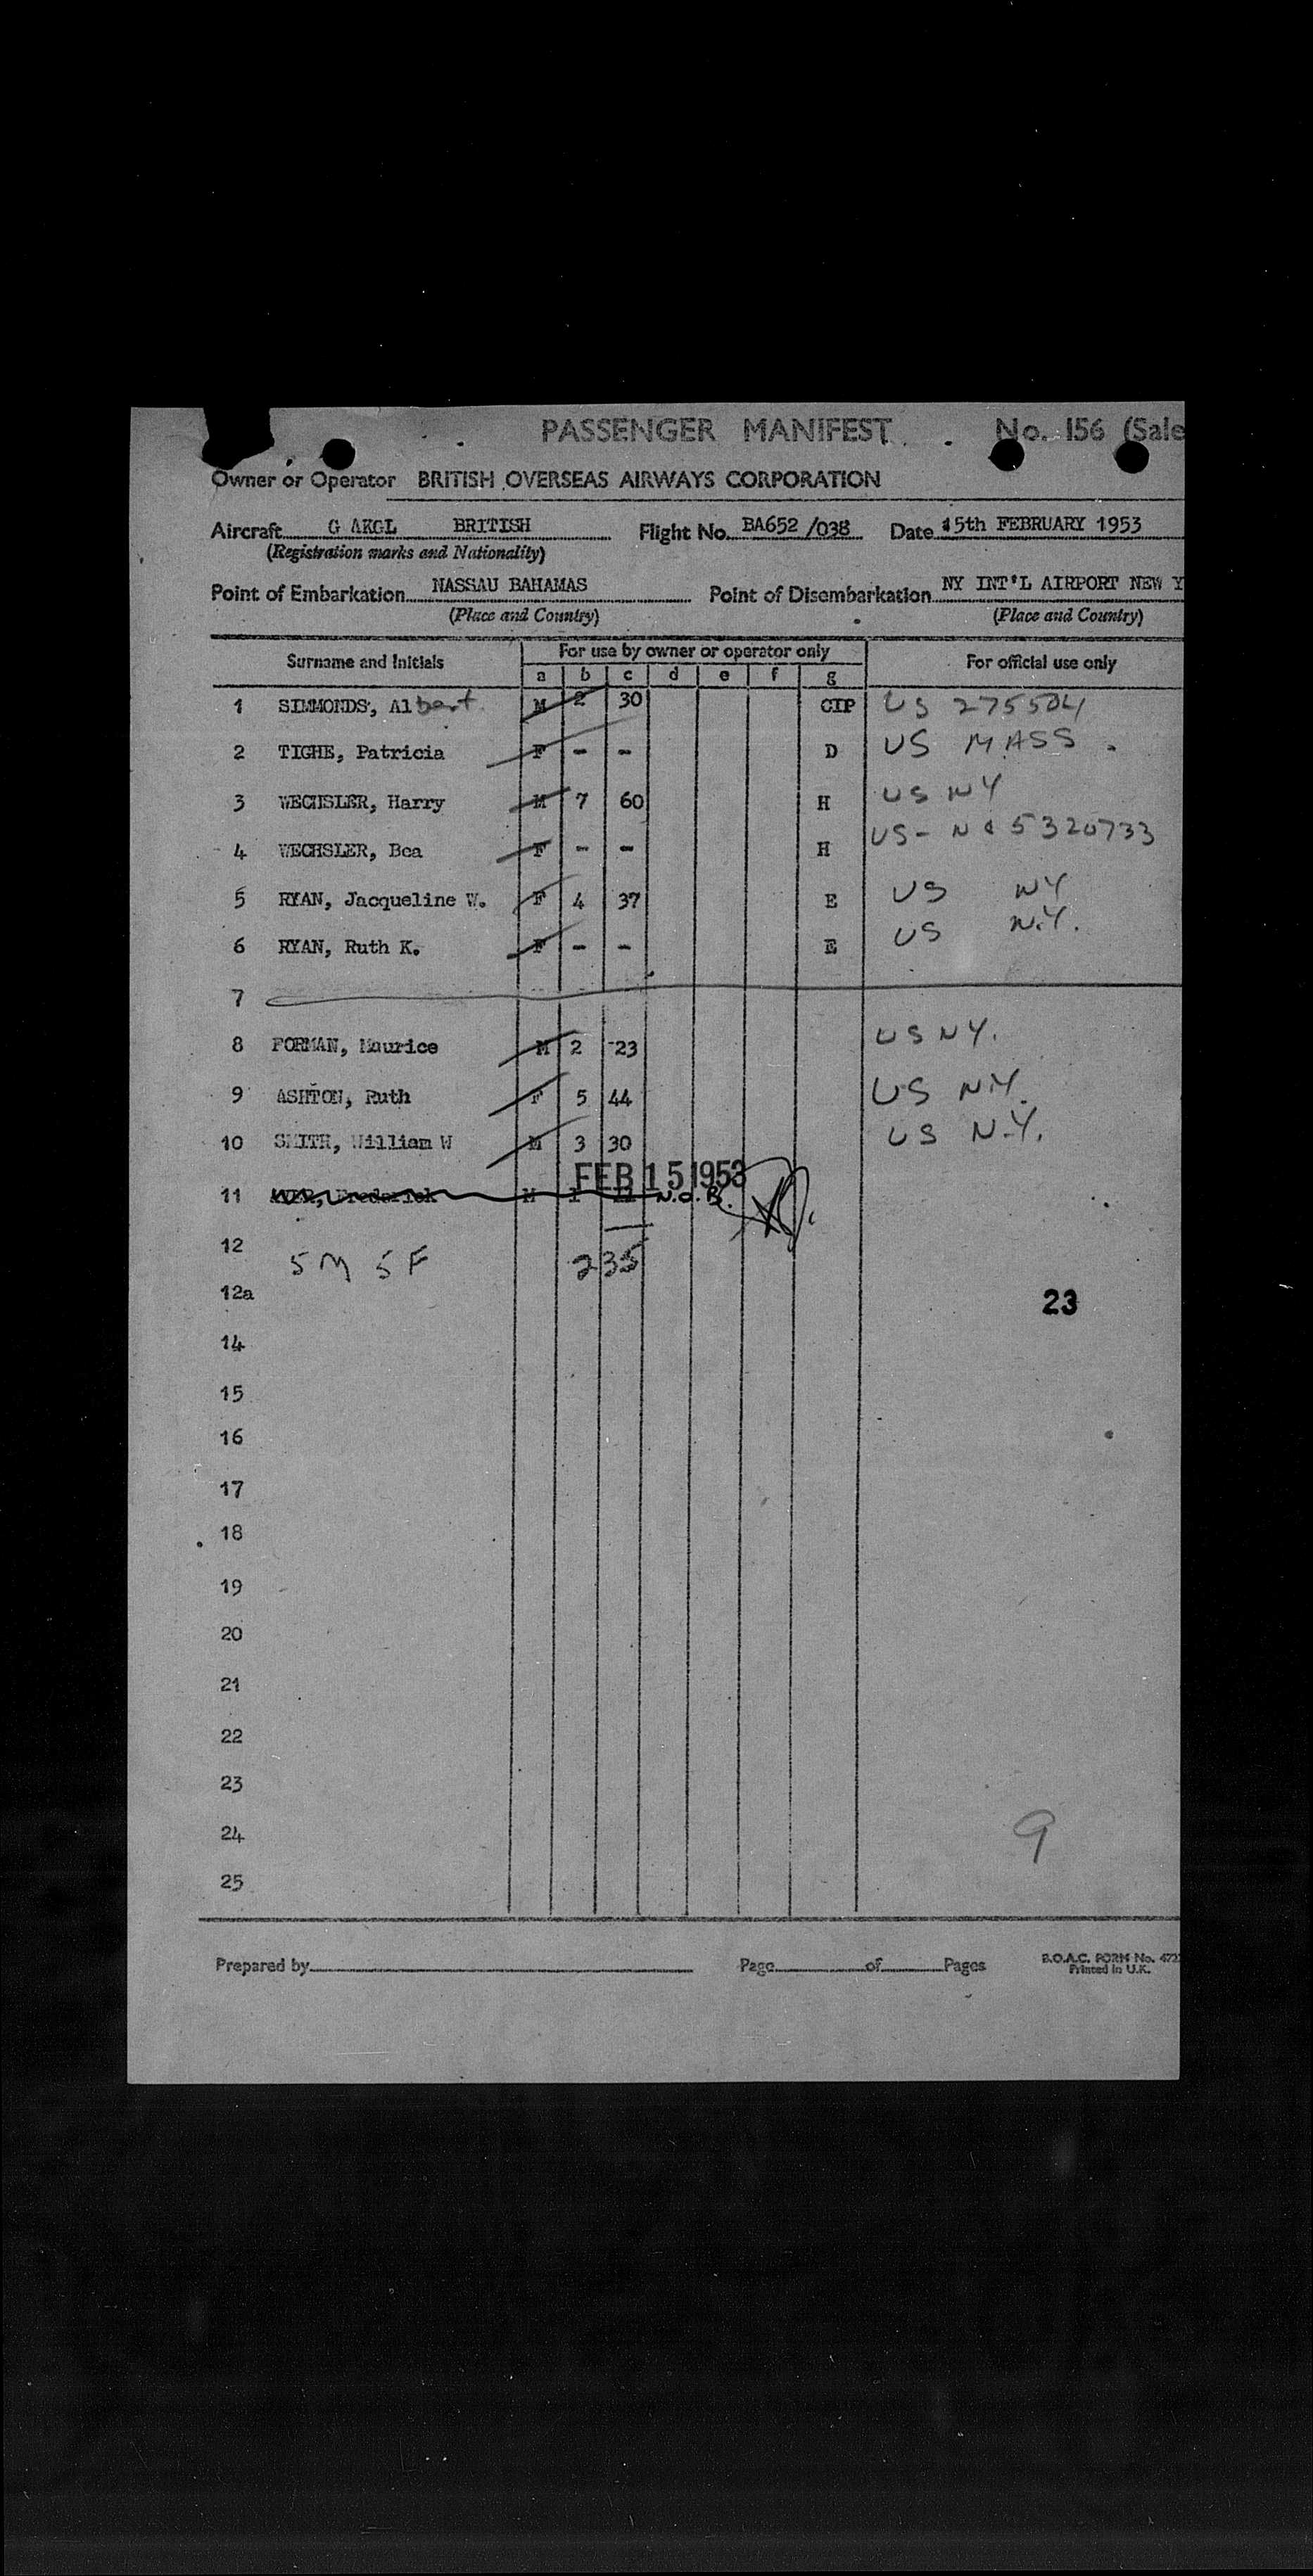 PASSENGER MANIFEST No. 156 (Sale
Owner or Operator BRITISH OVERSEAS AIRWAYS CORPORATION
Aircraft G AKGL BRITISH Flight No. BA652/038 Date 15th FEBRUARY 1953
(Registration marks and Nationality)
Point of Embarkation NASSAU BAHAMAS Point of Disembarkation NY INT'L AIRPORT NEW Y
(Place and Country) (Place and Country)
Surname and Initials For use by owner or operator only For official use only
a b c d e f g
1 SIMMONDS, Albert M 2 30 CIP US 275504
2 TIGHE, Patricia F - - D US MASS.
3 WECHSLER, Harry M 7 60 H US NY
4 WECHSLER, Bea F - - H US - 5320733
5 RYAN, Jacqueline W. F 4 37 E US NY
6 RYAN, Ruth K. F - - E US N.Y.
7
8 FORMAN, Maurice M 2 23 US NY.
9 ASHTON, Ruth F 5 44 US N.Y.
10 SMITH, William W M 3 30 US N.Y.
FEB 15 1953
11 Frederick M 1 N.O.B.
12 5M 5F 235
12a 23
14
15
16
17
18
19
20
21
22
23
24 9
25
Prepared by Page of Pages B.O.A.C. FORM No. 472
Printed in U.K.